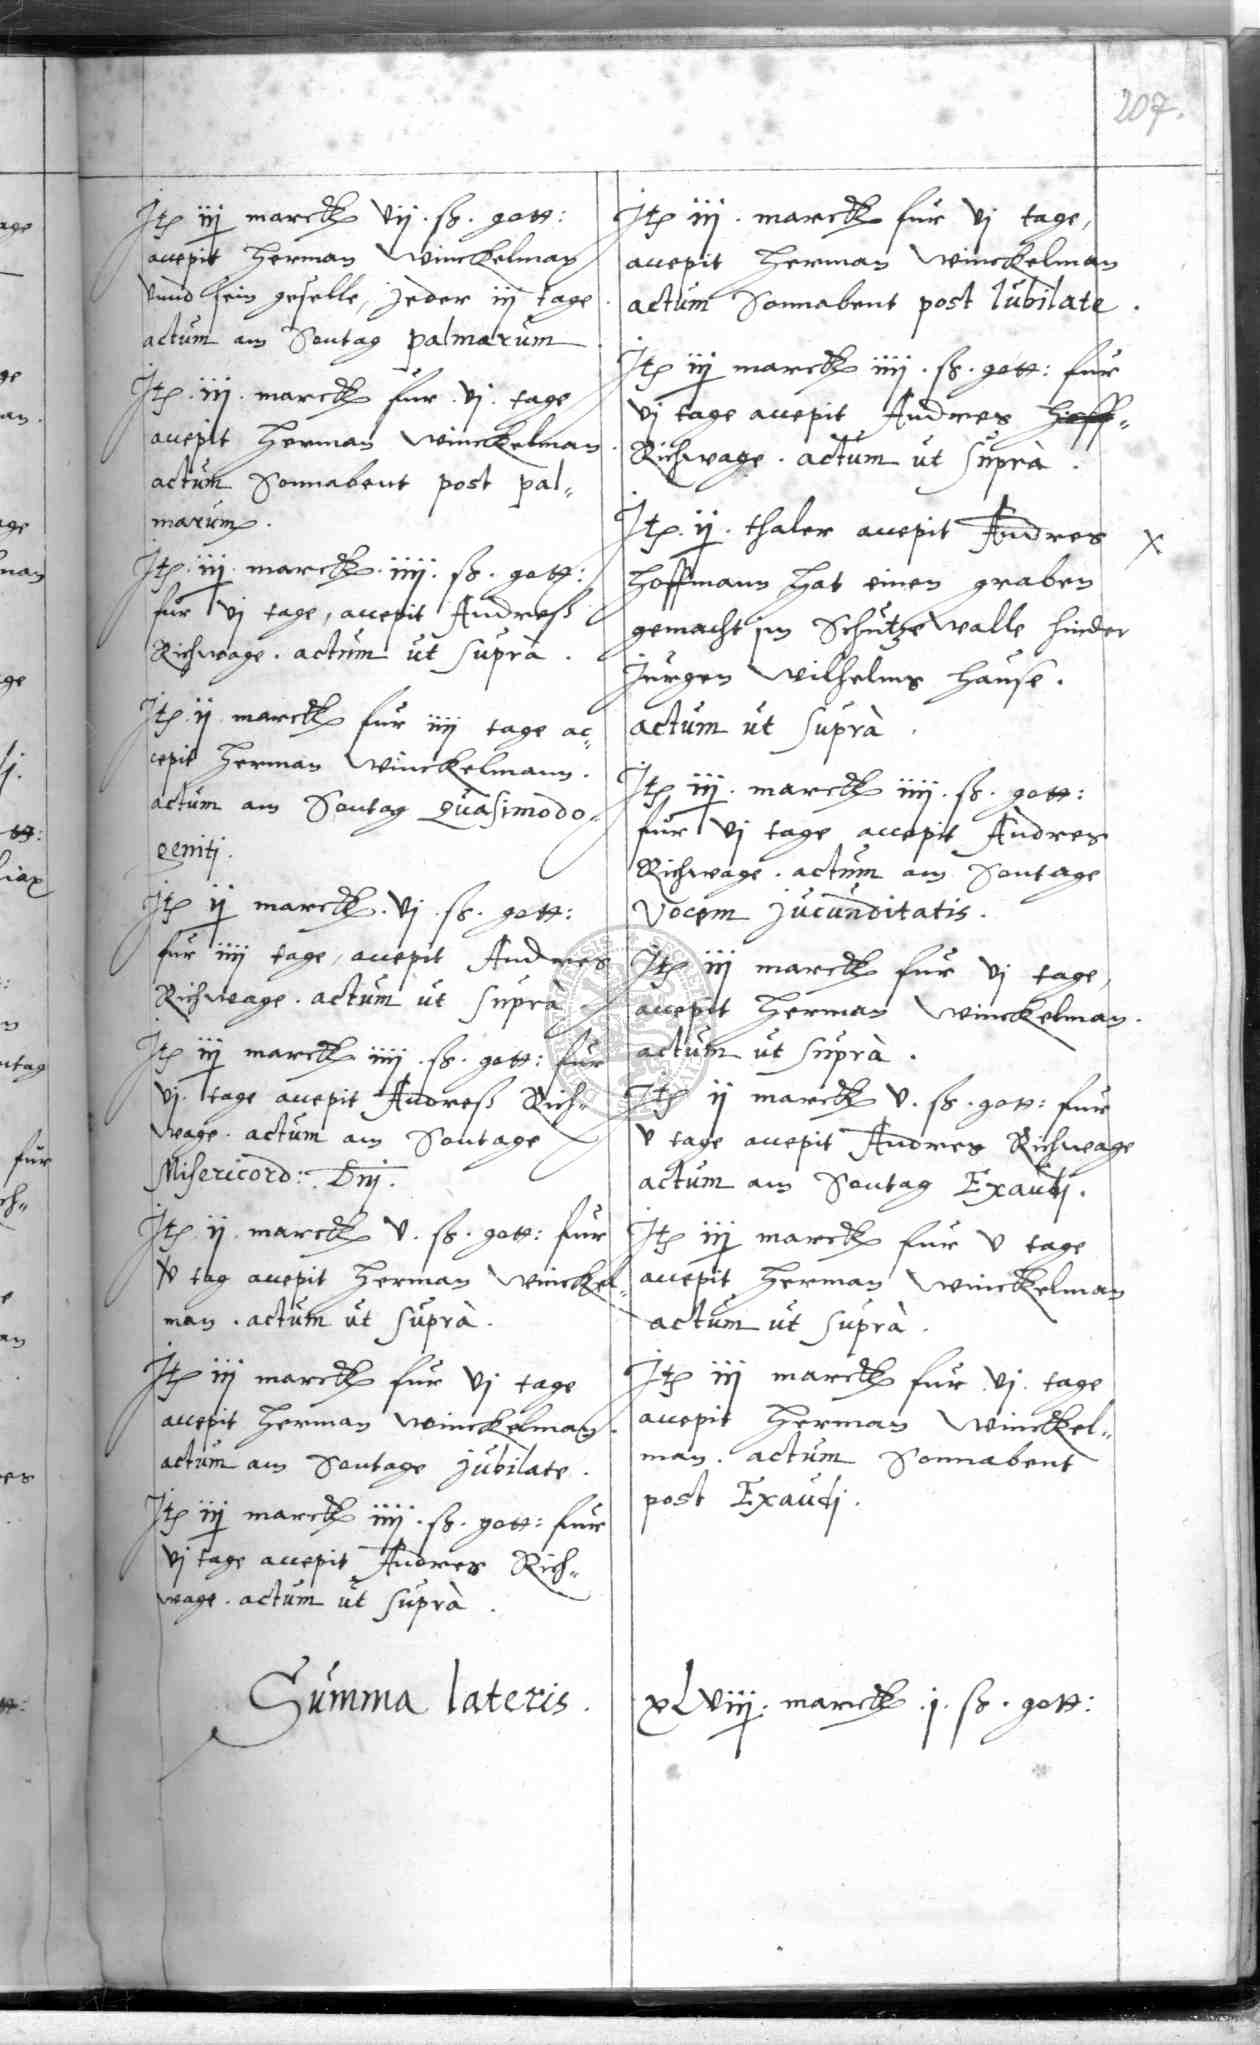 207.
Jt. iij marck vij. ß. gott:
accepit Herman Winckelman
vnnd sein geselle, Jeder iij tage
actum am Sontag palmarum
Jt. iij. marck fur. vj. tage
accepit Herman Winckelman
actum Sonnabent post pal„
marum.
Jt. iij. marck. iiij. ß. gott:
fur vj tage, accepit Andreß
Richwage. actum ut suprà.
Jt. ij marck fur iiij tage ac„
cepit Herman Winckelmann.
actum am Sontag Quasimodo„
geniti.
Jt. ij marck. vj. ß. gott:
fur iiij tage, accepit Andres
Richwage. actum ut suprà
Jt. iij marck iiij. ß. gott: fur
vj. tage accepit Andreß Rich„
wage. actum am Sontage
Misericord: Dnj.
Jt. ij. marck v. ß. gott: fur
v tag accepit Herman Winckel„
man. actum ut suprà.
Jt. iij marck fur vj tage
accepit Herman Winckelman.
actum am Sontage Jubilate.
Jt. iij marck iiij. ß. gott: fur
vj tage accepit Andres Rich„
wage. actum ut suprà.
Jt. iij. marck fur vj tage,
accepit Herman Winckelman
actum Sonnabent post Iubilate.
Jt. iij marck iiij. ß. gott: fur
vj tage accepit Andres Hoff„
Richwage. actum ut suprà.
Jt. ij. thaler accepit Andres x
Hoffmann hat einen graben
gemacht jm Schutzewalle hinder
Jurgen Wilhelms hause.
actum ut suprà.
Jt. iij. marck iiij. ß. gott:
fur vj tage accepit Andres
Richwage. actum am Sontage
Vocem Jucunditatis.
Jt. iij marck fur vj tage,
accepit Herman Winckelman.
actum ut suprà.
Jt. ij marck v. ß. gott: fur
v tage accepit Andres Richwage
actum am Sontag Exaudj.
Jt. iij marck fur v tage
accepit Herman Winckelman
actum ut suprà.
Jt. iij marck fur vj. tage
accepit Herman Winckel„
man. actum Sonnabent
post Exaudj.
Summa lateris. xLviij. marck .j. ß. gott: